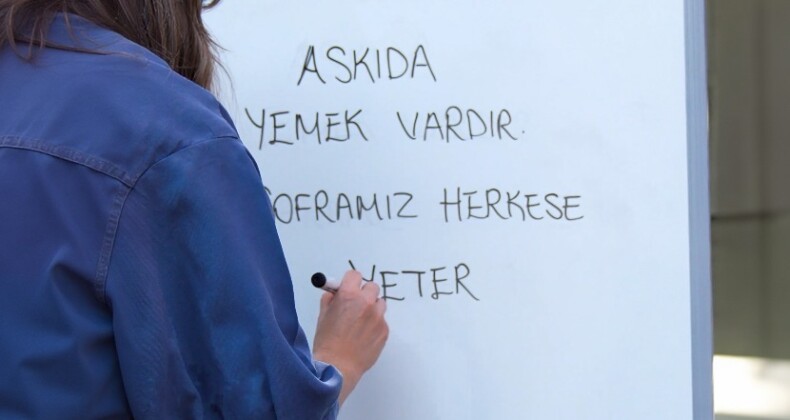 ASKIDA
YEMEK VARDIR.
SOFRAMIZ HERKESE
YETER